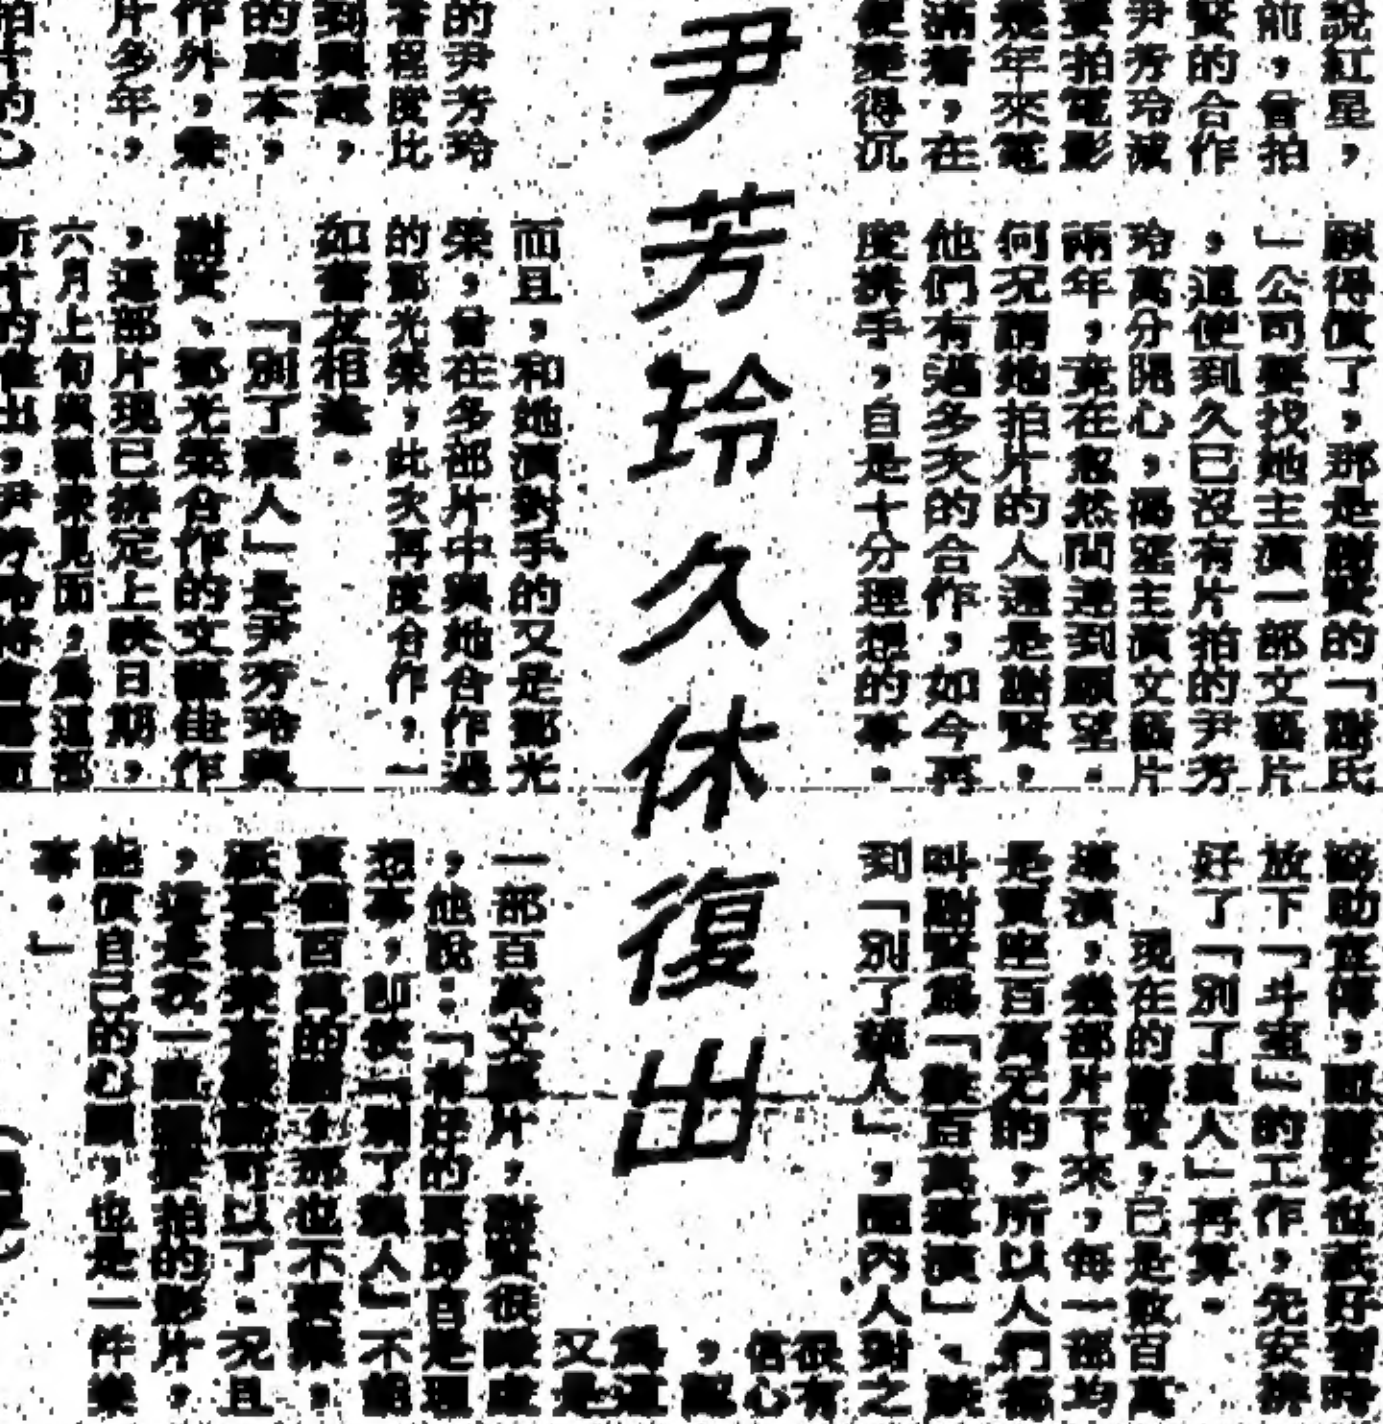 尹芳玲久休復出
說紅星，
前，曾拍
賢的合作
尹芳玲減
要拍電影
幾年來電
滿着，在
便變得沉
的尹芳玲
着程度比
到與趣，
的劇本，
作外，
片多年，
拍片的心
願得償了，那是謝賢的「謝氏
」公司要找她主演一部文藝片
，這使到久已沒有片拍的尹芳
玲萬分開心，渴望主演文藝片
兩年，竟在忽然間達到願望。
何况請她拍片的人還是謝賢，
他們有過多次的合作，如今再
度携手，自是十分理想的事。
而且，和她演對手的又是鄧光
榮，曾在多部片中與她合作過
的鄧光榮，此次再度合作，一
如舊友相逢。
「別了親人」是尹芳玲與
謝賢、鄧光榮合作的文藝佳作
，這部片現已排定上映日期，
六月上旬與觀衆見面，爲這部
新片的推出，尹芳玲將會
協助宣傳，而謝賢也衹好暫時
放下「斗室」的工作，先安排
好了「別了親人」再算。
現在的謝賢，已是數百萬
導演，幾部片下來，每一部均
是賣座百萬元的，所以人們都
叫謝賢爲「 百萬導演」、談
到「別了親人」，圈內人對之
很有
信心
，認
爲這
又是
一部百萬文藝片，謝賢很謙虛
，他說：「有好的票房自是理
想事，即使「別了親人」不能
賣個百萬的話，那也不要緊，
衹要觀衆喜歡就可以了。况且
，這是我一直要拍的影片，
能償自己的心願，也是一件樂
事。」